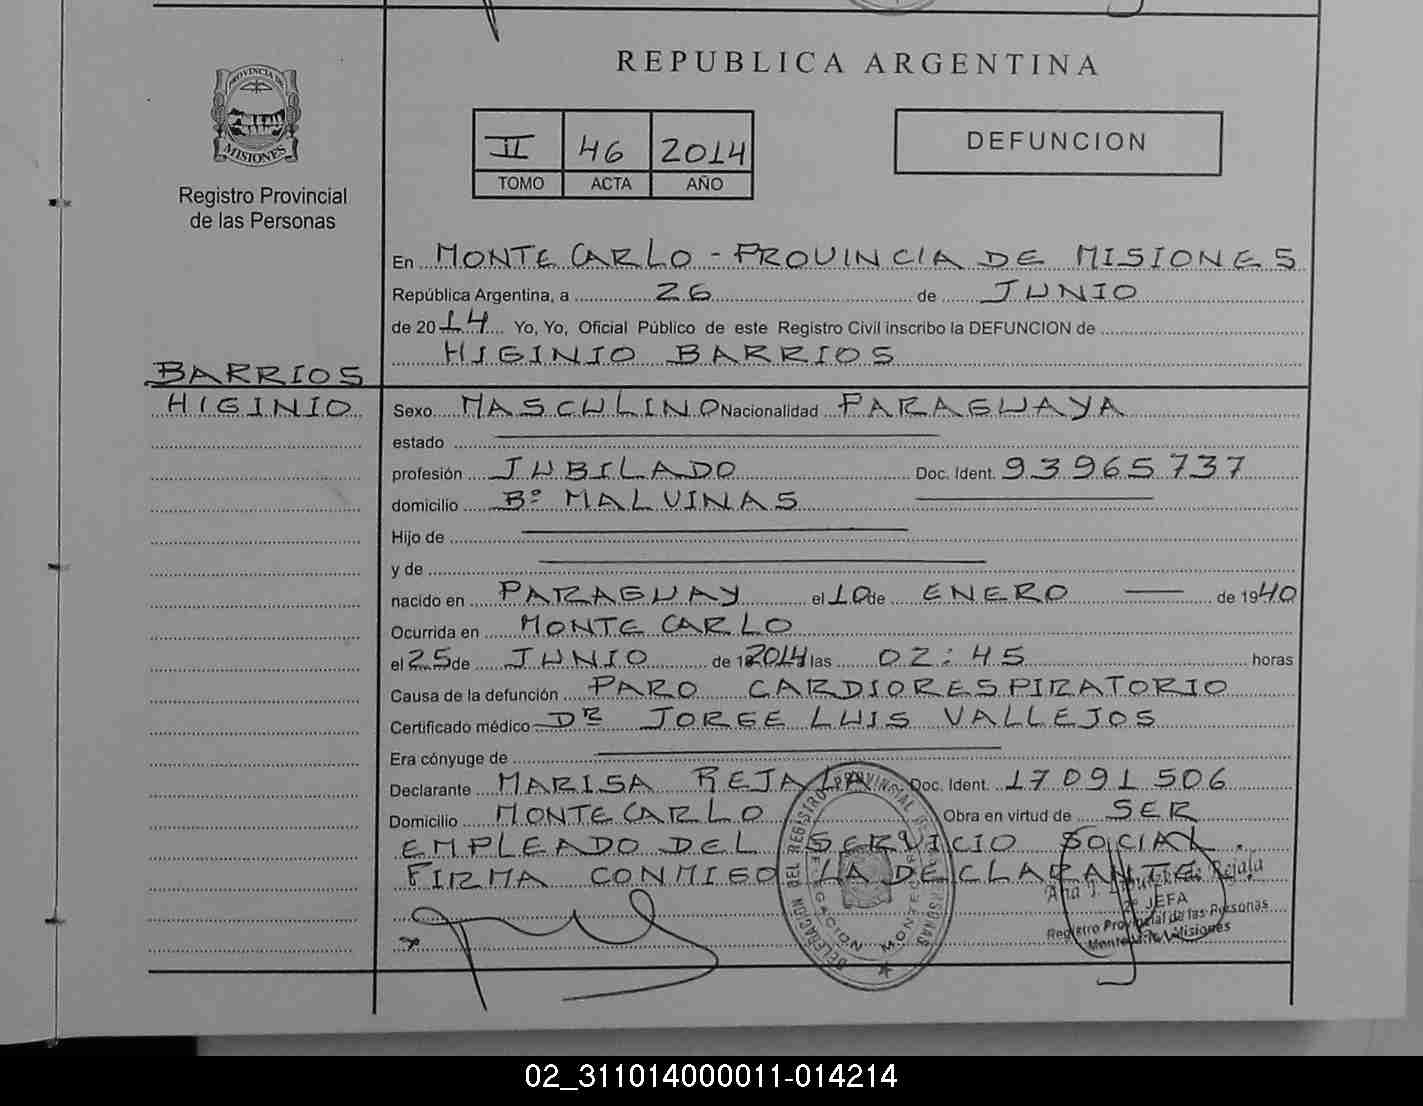 REPUBLICA ARGENTINA
PROVINCIA DE
MISIONES
Registro Provincial
de las Personas
II 46 2014
TOMO ACTA AÑO
DEFUNCION
En MONTE CARLO - PROVINCIA DE MISIONES
República Argentina, a 26 de JUNIO
de 2014 Yo, Yo, Oficial Público de este Registro Civil inscribo la DEFUNCION de
HIGINIO BARRIOS
BARRIOS
HIGINIO
Sexo MASCULINO Nacionalidad PARAGUAYA
estado
profesión JUBILADO Doc. Ident. 93965737
domicilio Bº MALVINAS
Hijo de
y de
nacido en PARAGUAY el 10 de ENERO de 1940
Ocurrida en MONTE CARLO
el 25 de JUNIO de 2014 las 02:45 horas
Causa de la defunción PARO CARDIORESPIRATORIO
Certificado médico DR JORGE LUIS VALLEJOS
Era cónyuge de
Declarante MARISA REJALA Doc. Ident. 17091506
Domicilio MONTECARLO Obra en virtud de SER
EMPLEADO DEL SERVICIO SOCIAL.
FIRMA CONMIGO LA DECLARANTE
DELEGACION DEL REGISTRO PROVINCIAL DE LAS PERSONAS
DELEGACION MONTECARLO
Rejala
2º JEFA
Registro Provincial de las Personas
Montecarlo - Misiones
02_311014000011-014214